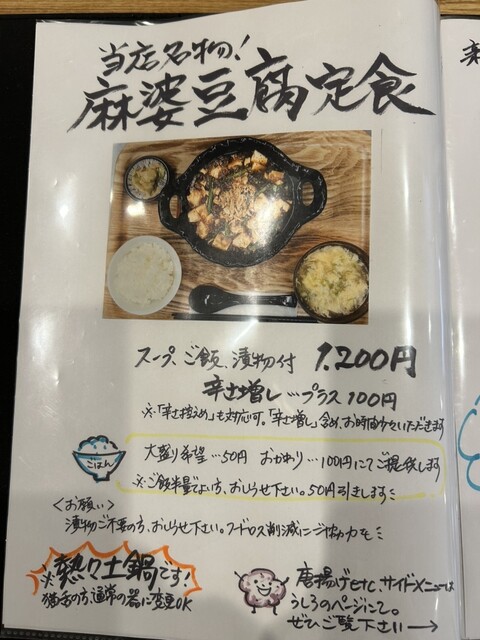 当店名物！
麻婆豆腐定食
スープ、ご飯、漬物付 1,200円
辛さ増し…プラス100円
※「辛さ控えめ」も対応可。「辛さ増し」含め、お時間少々いただきます
ごはん
大盛り希望…50円 おかわり…100円にてご提供します
※ご飯半量でよい方、おしらせ下さい。50円引きします
＜お願い＞
漬物ご不要の方、おしらせ下さい。フードロス削減にご協力を
※熱々土鍋です！
猫舌の方、通常の器に変更OK
唐揚げetc、サイドメニューは
うしろのページにて。
ぜひご覧下さい→